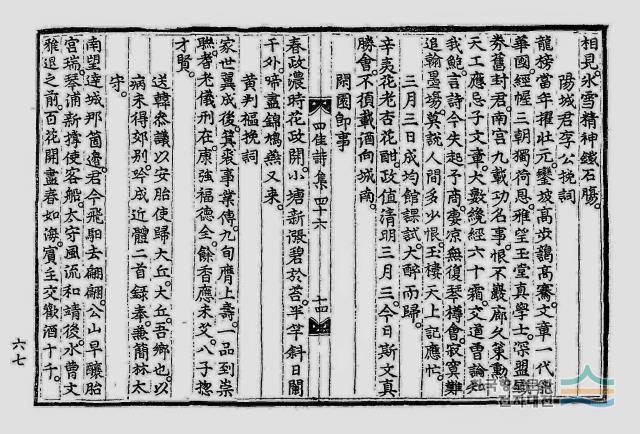 相見。氷雪精神鐵石腸。
陽城君李公挽詞
龍榜當年擢壯元。鑾坡高步鵠高騫。文章一代
華國。經幄三朝獨荷恩。雅望玉堂眞學士。深盟
券舊封君。南宮九載功名事。恨不巖廊久策勳。
天工應忌子文章。大數纔經六十霜。文道曹論知
我鮑。言詩今失起予商。雲凉無復琴樽會。寂寞難
追翰墨場。莫說人間多少恨。玉樓天上記應忙。
三月三日。成均館課試。大醉而歸。
辛夷花老杏花酣。政値淸明三月三。今日斯文眞
勝會。不須載酒向城南。
閑園卽事
春政濃時花政開。小塘新漲碧於苔。半竿斜日闌
干外。啼盡錦鳩燕又來。
黃判樞挽詞
家世翼成後。箕裘事業傳。九旬膺上壽。一品到崇
聯。耆老儀刑在。康強福德全。餘香應未艾。八子摠
才賢。
送韓參議以安胎使歸大丘。大丘。吾鄕也。以
病未得郊別。吟成近體二首錄奉。兼簡林太
守。
南望達城那箇邊。君今飛馹去翩翩。公山早釀胎
宮瑞。琴浦新撐使客船。太守風流和靖後。水曹文
雅退之前。百花開盡春如海。賓主交歡酒十千。
四佳詩集 四十六
十四
六七
전자대전